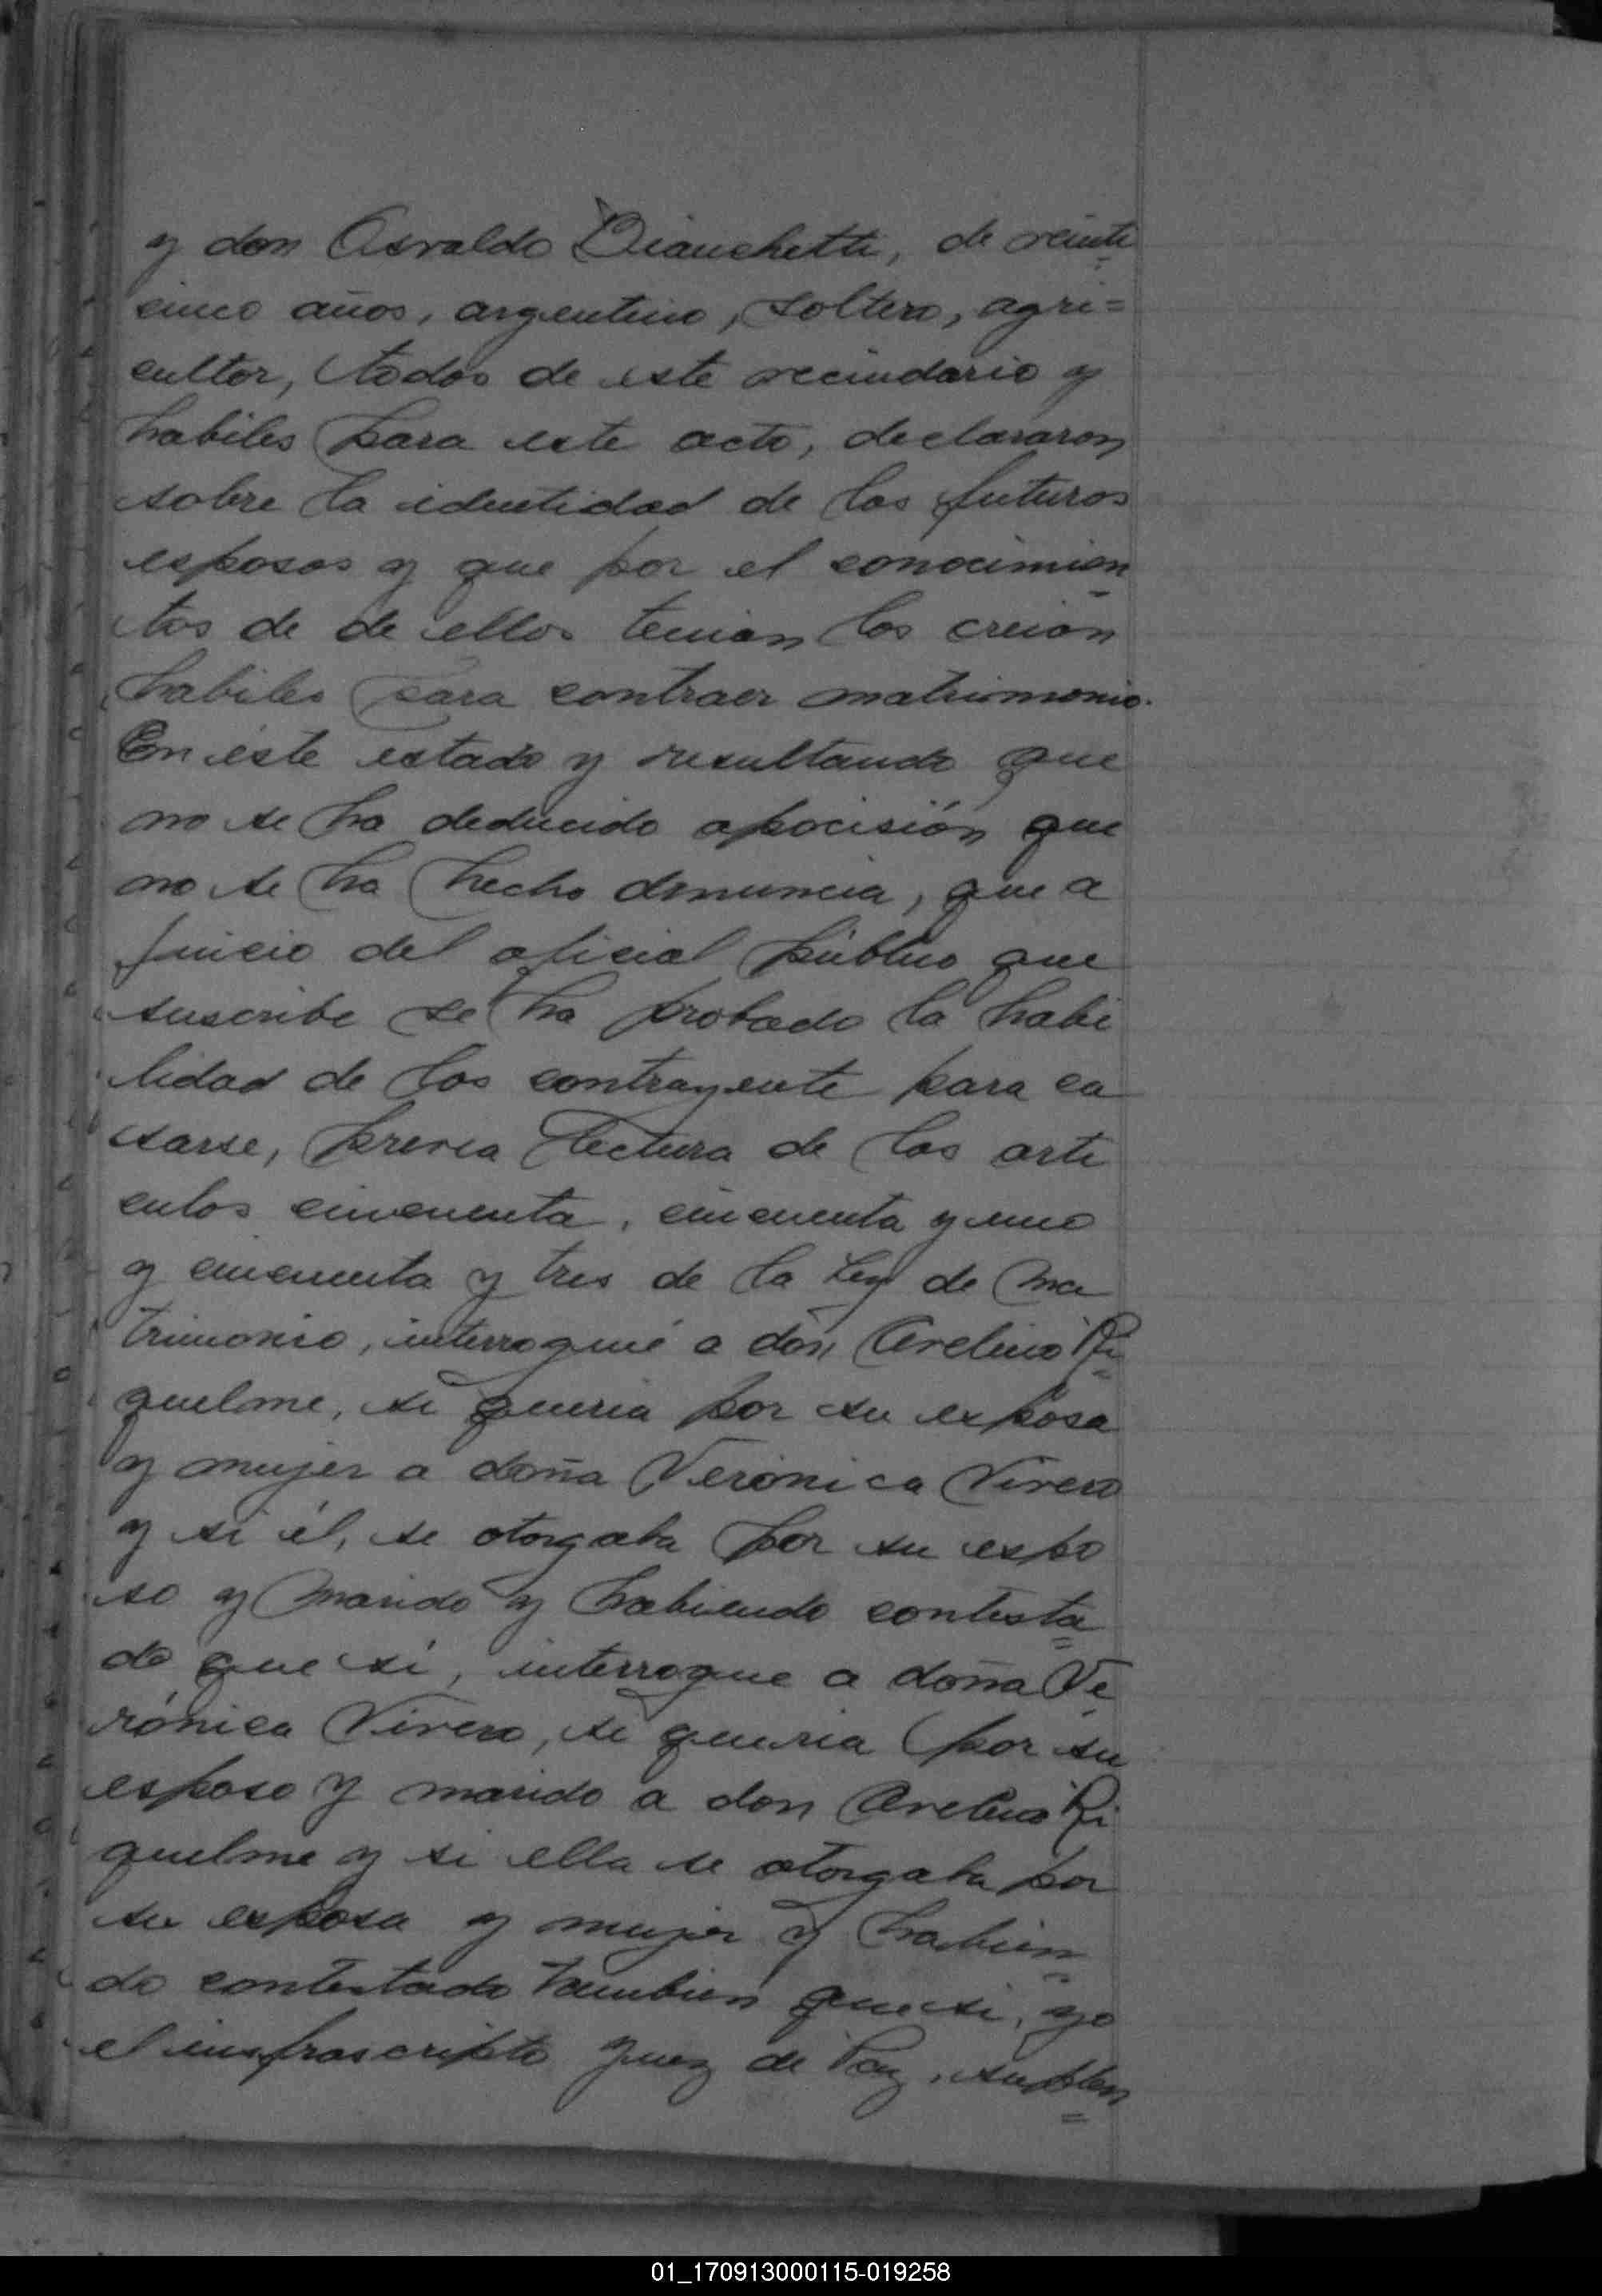 y don Osvaldo Dianchetti, de veinti
cinco años, argentino, soltero, agri=
cultor, todos de este vecindario y
habiles para este acto, declararon
sobre la identidad de los futuros
esposos y que por el conocimien
tos de de ellos tenian los creian
habiles para contraer matrimonio.
En este estado y resultando que
no se ha deducido opocisión que
no se ha hecho denuncia, que a
juicio del oficial público que
suscribe se ha probado la habi
lidad de los contrayente para ca
sarse, previa lectura de los arti
culos cincuenta, cincuenta y uno
y cincuenta y tres de la Ley de Ma
trimonio, interrogué a don Avelino Ri
quelme, si queria por su esposa
y mujer a doña Verónica Vivero
y si él, se otorgaba por su espo
so y marido y habiendo contesta
do que si, interrogue a doña Ve
rónica Vivero, si queria por su
esposo y marido a don Avelino Ri
quelme y si ella se otorgaba por
su esposa y mujer y habien
do contestado tambien que si, yo
el infrascripto Juez de Paz, suplen
01_170913000115-019258